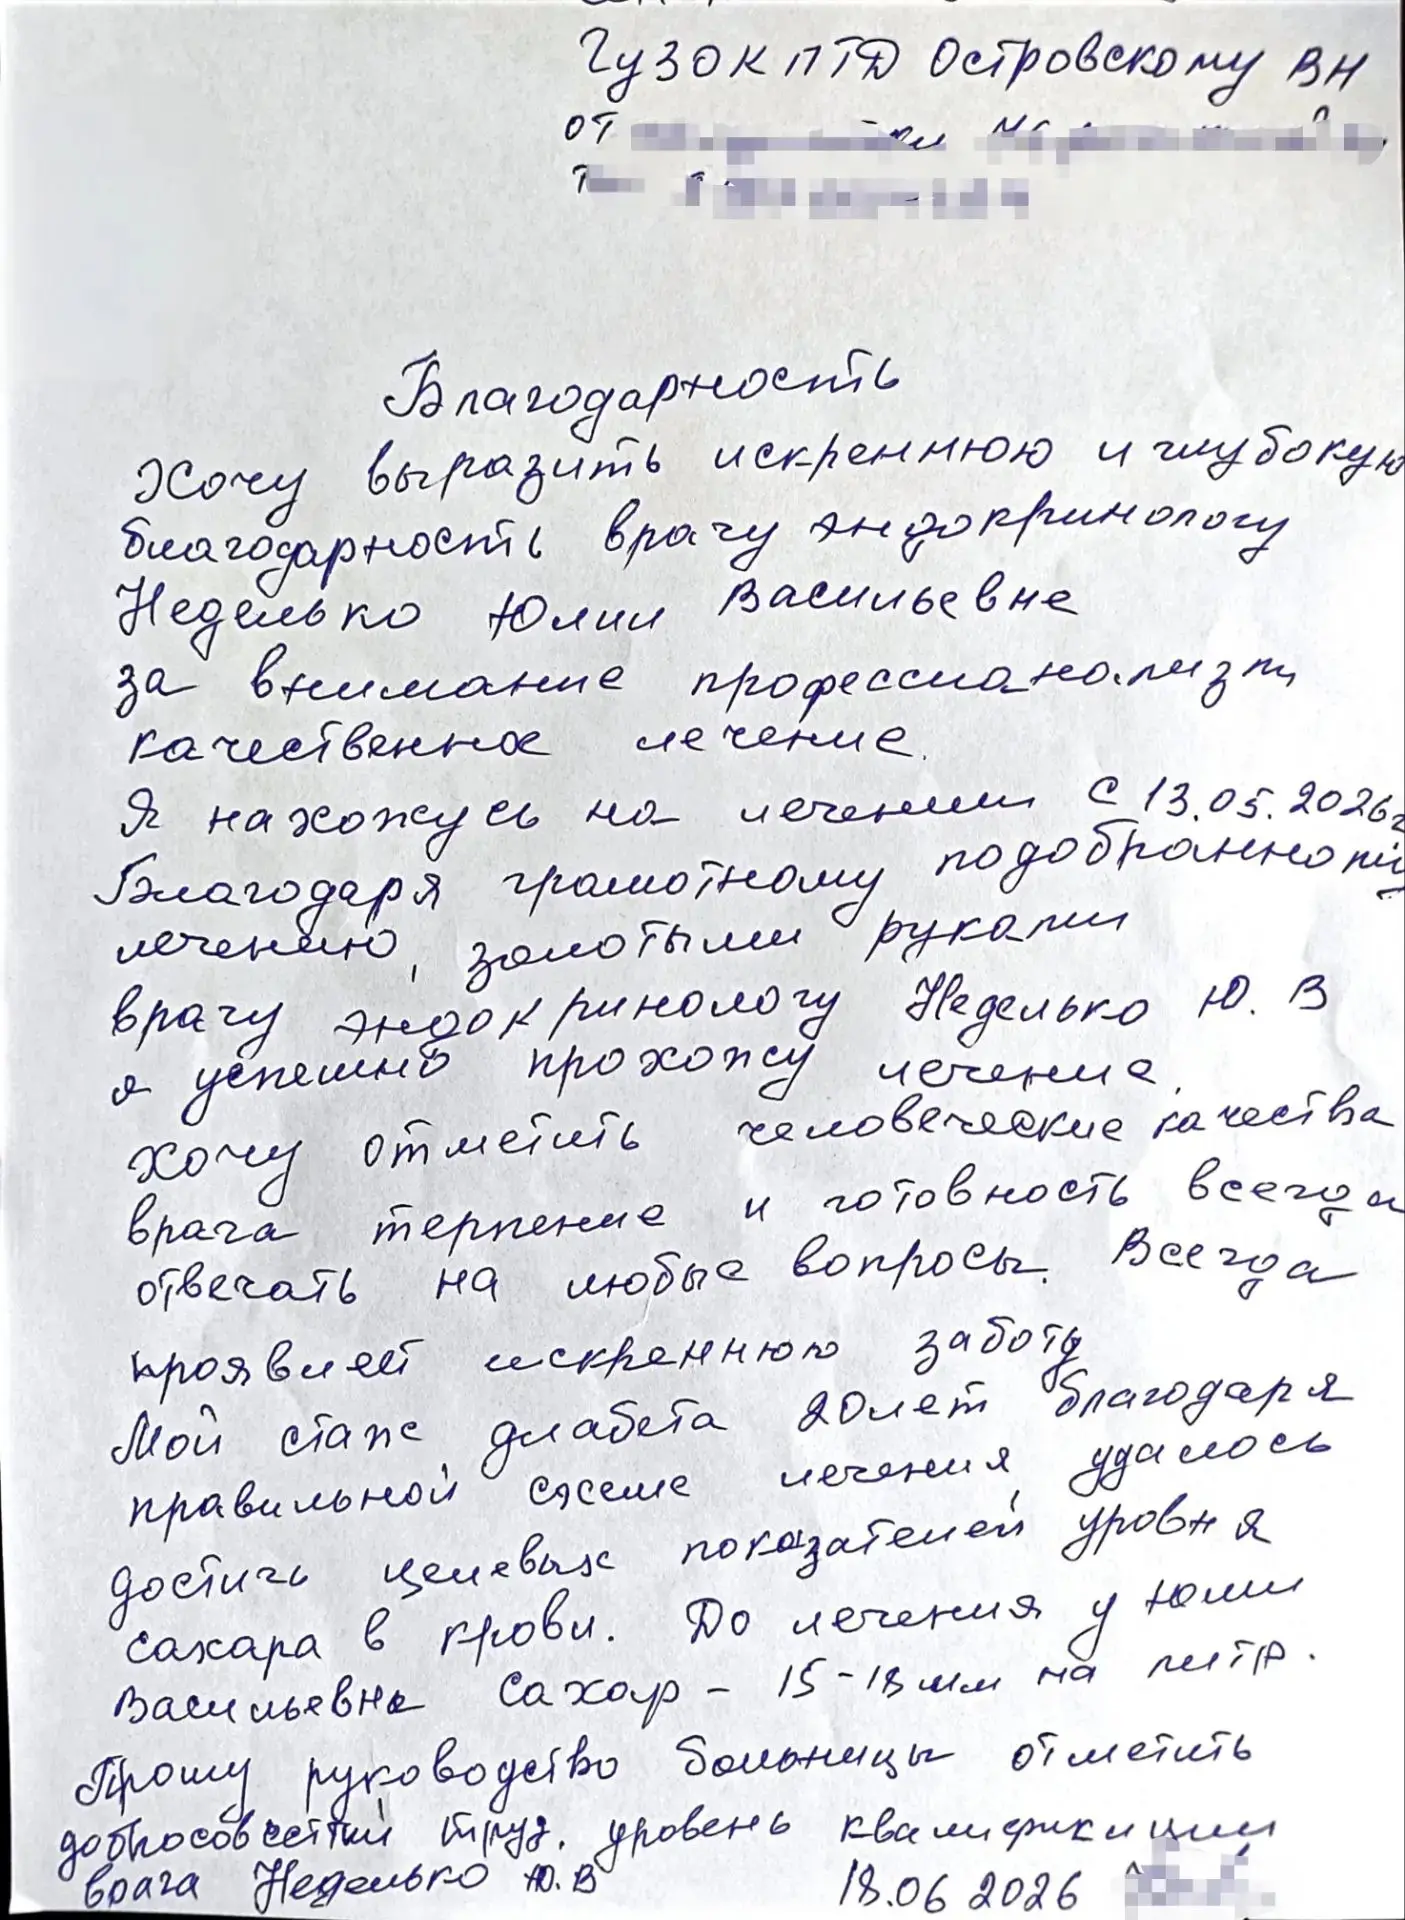 ГУЗОКПТД Островскому ВН
от
Благодарность
Хочу выразить искреннюю и глубокую
благодарность врачу эндокринологу
Неделько Юлии Васильевне
за внимание профессианализм
качественное лечение.
Я нахожусь на лечении с 13.05.2026г
Благодаря грамотному подобранному
лечению, золотыми руками
врачу эндокринологу Неделько Ю. В
я успешно прохожу лечение.
Хочу отметить человеческие качества
врача терпение и готовность всегда
отвечать на любые вопросы. Всегда
проявляет искреннюю заботу
Мой стаж диабета 20лет благодаря
правильной схеме лечения, удалось
достичь целевых показателей уровня
сахара в крови. До лечения у Юлии
Васильевне Сахар - 15-18 мм на литр.
Прошу руководство больницы отметить
труд, уровень
врача Неделько Ю.В 18.06 2026